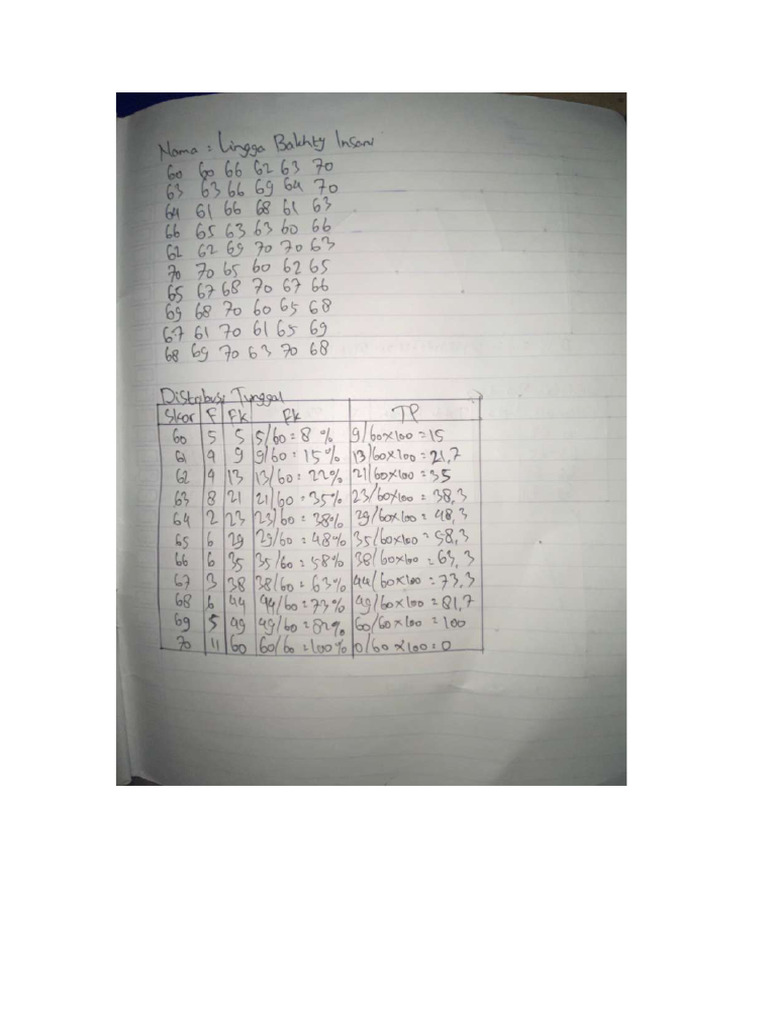 Nama : Lingga Bakhty Insani
60 60 66 62 63 70
63 63 66 69 64 70
64 61 66 68 61 63
66 65 63 63 60 66
62 62 69 70 70 63
70 70 65 60 62 65
65 67 68 70 67 66
69 68 70 60 65 68
67 61 70 61 65 69
68 69 70 63 70 68
Distribusi Tunggal
Skor F Fk Fk TP
60 5 5 5/60 = 8 % 9/60x100 = 15
61 4 9 9/60 : 15% 13/60x100 = 21,7
62 4 13 13/60 : 22% 21/60x100 = 35
63 8 21 21/60 = 35% 23/60x100 = 38,3
64 2 23 23/60 : 38% 29/60x100 = 48,3
65 6 29 29/60 = 48% 35/60x100 = 58,3
66 6 35 35/60 = 58% 38/60x100 = 63,3
67 3 38 38/60 = 63% 44/60x100 = 73,3
68 6 44 44/60 = 73% 49/60x100 = 81,7
69 5 49 49/60 = 82% 60/60x100 = 100
70 11 60 60/60 = 100% 0/60x100 = 0